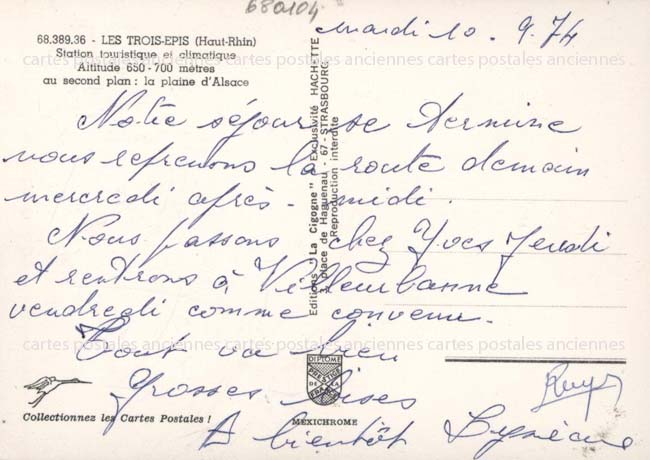 680104
mardi 10.9.74
68.389.36 - LES TROIS-EPIS (Haut-Rhin)
Station touristique et climatique
Altitude 650-700 mètres
au second plan : la plaine d'Alsace
Notre séjour se termine
nous reprenons la route demain
mercredi après-midi.
Nous passons chez Yves Jeudi
et rentrons à Villeurbanne
vendredi comme convenu.
Tout va bien
Grosses bises
A bientôt
Editions "La Cigogne" - Exclusivité HACHETTE
place de Haguenau - 67 - STRASBOURG
Reproduction interdite
DIPLOME
PRESTIGE
DE LA
FRANCE
MEXICHROME
Collectionnez les Cartes Postales !
cartes postales anciennes